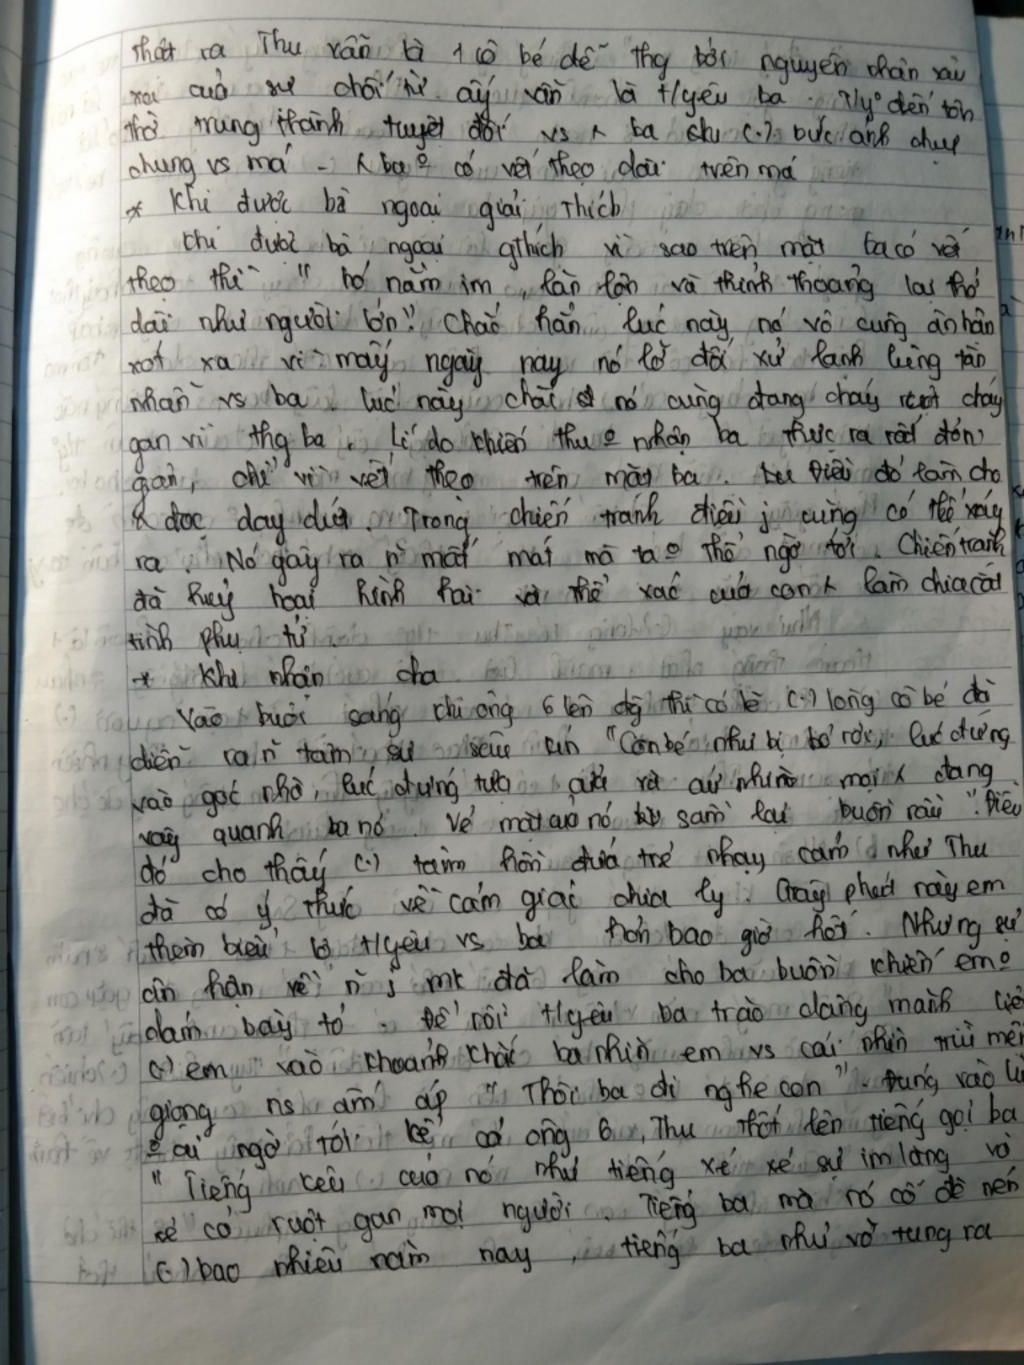 thật ra Thu vẫn là 1 cô bé dễ thg bởi nguyên nhân sâu
xa của sự chối từ ấy vẫn là t/yêu ba. T/y đến tôn
thờ trung thành tuyệt đối vs ba (.) bức ảnh chụp
chung vs má - ba có vết thẹo dài trên má
* Khi được bà ngoại giải thích
Khi được bà ngoại gthích vì sao trên mặt ba có vết
thẹo thì " nó nằm im, lăn lộn và thỉnh thoảng lại thở
dài như người lớn". Chắc hẳn lúc này nó vô cùng ân hận
xót xa vì mấy ngày nay nó lỡ đối xử lạnh lùng tàn
nhẫn vs ba. lúc này chắc nó cũng đang cháy ruột cháy
gan vì thg ba. Lí do khiến thu nhận ba thực ra rất đơn
giản, chỉ vì vết thẹo trên mặt ba. Điều đó làm cho
đọc day dứt. Trong chiến tranh điều j cũng có thể xảy
ra. Nó gây ra n mất mát mà ta thể ngờ tới. Chiến tranh
đã huỷ hoại hình hài và thể xác của con làm chia cắt
tình phụ tử.
* Khi nhận cha
Vào buổi sáng khi ông 6 lên đg thì có lẽ (.) lòng cô bé đã
diễn ra n tâm sự "Con bé như bị bỏ rơi, lúc đứng
vào góc nhà, lúc đứng tựa cửa và cứ nhìn mọi đang
vây quanh ba nó. Vẻ mặt của nó sầm lại buồn rầu". Điều
đó cho thấy (.) tâm hồn đứa trẻ nhạy cảm như Thu
đã có ý thức về cảm giác chia ly. Giây phút này em
thèm biểu lộ t/yêu vs ba hơn bao giờ hết. Nhưng sự
ân hận về n j mk đã làm cho ba buồn khiến em
dám bày tỏ. Để rồi t/yêu ba trào dâng mãnh liệt
(.) em vào khoảnh khắc ba nhìn em vs cái nhìn trìu mến
giọng ns ấm áp "Thôi ba đi nghe con". Đúng vào lúc
ai ngờ tới kể cả ông 6, Thu thốt lên tiếng gọi ba
"Tiếng kêu của nó như tiếng xé xé sự im lặng và
xé cả ruột gan mọi người. Tiếng ba mà nó cố đè nén
(.) bao nhiêu năm nay, tiếng ba như vỡ tung ra